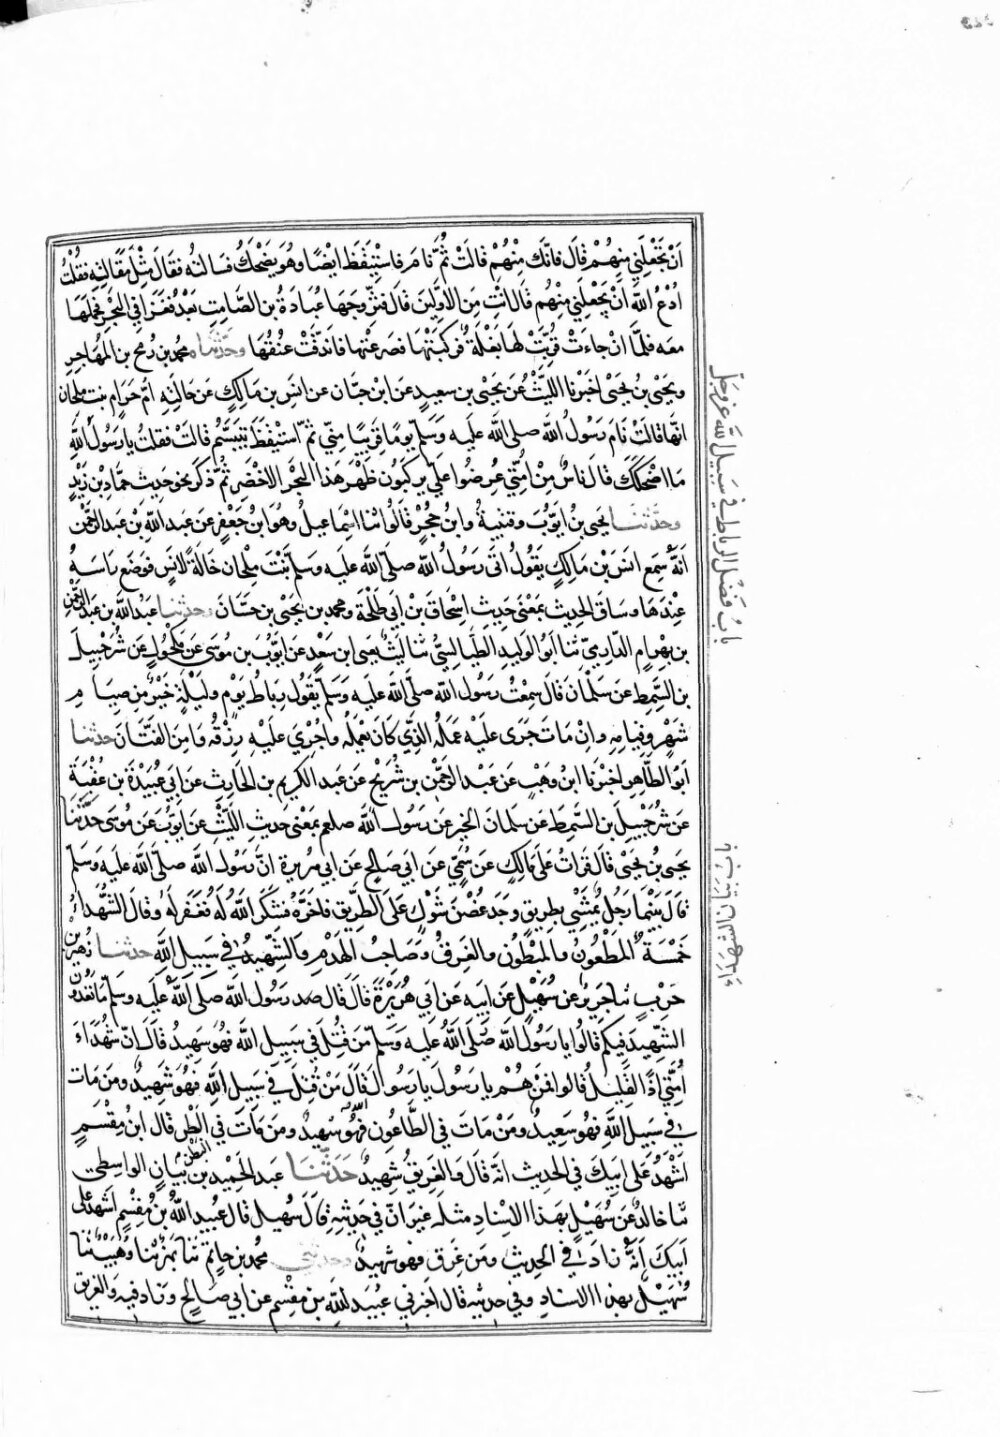 اَنْ يَجْعَلَنِي مِنْهُمْ قَالَ فَانَّكَ مِنْهُمْ قَالَتْ ثُمَّ نَامَ فَاسْتَيْقَظَ ايْضًا وَهُوَ يَضْحَكُ فَسَالتُهُ فَقَالَ مِثْلَ مَقَالَتِهِ فَقُلْتُ
ادْعُ اللَّهَ انْ يَجْعَلنِي مِنْهُم قَالَ انْتِ مِنَ الاَوَّلِينَ قَالَ فَتَزَّوجَهَا عُبَادَةُ بن الصَّامِتِ بَعْدُ فَغَزَا فِي البَحْرِ فَحَمَلَهَا
معَه فَلمَّا انْ جَاءَتْ قُرِّبَتْ لهَا بَغْلَة فرَكِبَتْهَا فَصَرَعَتْهَا فَانْدَقَّتْ عُنُقُهَا وحَدَّثَنَا محمد بن رُمْحِ بن المُهَاجِرِ
ويحْيَى بنُ يَحْيَى اخْبَرَنا اللَّيْثُ عَن يَحْيَى بن سعِيدٍ عَن ابْن حَبَّان عن انَسِ بن مَالِكٍ عَن خَالتِهِ امِّ حَرَامٍ بنت ملحان
انهَا قالَتْ نَامَ رَسُولُ اللَّه صلى اللَّه علَيه وَسَلَّمَ يومًا قَرِيبًا مِنِّي ثمَّ اسْتَيْقَظَ يَتَبَسَّمُ قَالَتْ فَقلتُ يا رَسُولَ اللَّهِ
مَا اضْحَكَكَ قَالَ نَاسٌ مِنْ امَّتِي عُرِضُوا عَلَيَّ يَرْكَبُونَ ظَهْرَ هَذَا البَحْرِ الاخْضَرِ ثُمَّ ذَكَرَ نحو حَدِيث حمَّادِ بن زَيْدٍ
وحَدَّثنَا يحيى بن ايّوبَ وَقتيبةُ وَابنُ حُجْرٍ قَالُوا ثنا اسْمَاعيلُ وهُوَ ابنُ جَعْفَرٍ عَن عَبدِ اللَّهِ بْن عَبد الرَّحْمنِ
انَّهُ سَمِعَ انَسَ بْن مَالِكٍ يَقُولُ اتَى رَسُولُ اللَّه صلّى اللَّه علَيه وَسلّم بنْتَ مِلْحَان خَالَةَ لانَسٍ فَوَضَعَ رَاسَهُ
عِنْدَهَا وسَاقَ الحَدِيثَ بمَعْنَى حَدِيثِ اسْحَاقَ بْنِ ابي طَلْحَة ومحمد بن يَحْيَى بن حَبَّانَ وحدثنا عبدُ اللَّه بن عَبد الرَّحْمنِ
بن بَهْرَامٍ الدَّارِمِيُّ ثنا ابُو الوَليدِ الطَّيَالِسيُّ ثنا لَيْثٌ يعنى ابن سَعْدٍ عَن ايُّوبَ بن مُوسَى عَن مَكْحُولٍ عَن شُرَحْبِيلَ
بن السِّمطِ عن سَلْمَانَ قَالَ سمِعْتُ رَسُولَ اللَّه صَلّى اللَّه علَيه وَسَلّم يَقُولُ رِبَاطُ يَوْمٍ وَليْلَةٍ خَيْرٌ مِن صِيَامِ
شَهْرٍ وقِيَامِه وانْ مَاتَ جَرَى علَيْهِ عَمَلُهُ الذِي كَانَ يَعْمَلُه واجْرِيَ عليْهِ رِزْقُهُ وامِنَ الفَتَّانَ حدثنا
ابُو الطَّاهِرِ اخبَرَنا ابنُ وَهْبٍ عَن عَبدِ الرَّحمْنِ بن شُرَيْحٍ عَن عَبدِ الكَريمِ بن الحَارِث عَن ابي عُبَيْدَة بن عُقْبَة
عَن شُرَحْبِيلَ بن السِّمْطِ عَن سَلمَانَ الخَيرِ عن رَسُولِ اللَّه صلعم بمَعْنى حَديثِ اللَّيْثِ عَن ايوبَ بن مُوسَى حدَّثَنَا
يَحيى بنُ يَحْيَى قَالَ قَرَاتُ عَلَى مَالِكٍ عَن سُمَيٍّ عَن ابي صَالحٍ عَن ابي هُرَيرةَ انَّ رَسُولَ اللَّه صَلَّى اللَّه علَيه وَسَلَّم
قالَ بَيْنَمَا رَجُلٌ يَمْشِي بطَرِيقٍ وَجَدَ غُصْنَ شَوْكٍ عَلَى الطَّرِيقِ فاخَّرَهُ فشَكَرَ اللَّهُ لَهُ فغَفَرَ لَهُ وقَالَ الشُّهَدَاءُ
خَمْسَةٌ المَطْعُونُ والمَبْطُونُ والغَرِقُ وَصَاحِبُ الهَدْمِ والشَّهِيدُ في سَبيلِ اللَّهِ حدثنا زُهَيرُ بن
حَربٍ ثنا جَرِيرٌ عَن سُهَيْلٍ عَن ابِيهِ عَن ابي هُرَيْرَةَ قالَ قَالَ رَسُولُ اللَّه صَلَّى اللَّه علَيه وسَلَّم مَا تَعُدُّونَ
الشَّهِيدَ فيكم قَالُوا يا رَسُولَ اللَّه صَلَّى اللَّه علَيه وَسَلّم مَن قُتِلَ في سَبِيلِ اللَّه فَهُوَ شَهِيدٌ قَالَ انَّ شُهَدَاءَ
امَّتِي اذًا لقَلِيلٌ قَالوا فَمَنْ هُم يا رَسُولَ يا رَسُوالَ قَالَ مَنْ قُتِلَ فِي سَبيلِ اللَّهِ فَهُوَ شَهِيدٌ ومَن مَات
في سَبيل اللَّهِ فهُوَ سَعِيدٌ ومَنْ مَاتَ في الطَّاعُونِ فَهُوَ شَهِيدٌ ومَن مَاتَ في البَطْنِ قال ابنُ مِقْسَمٍ
اشْهَدُ عَلى ابِيكَ في الحَدِيث انّه قَالَ والغَرِيقُ شَهِيدٌ حَدَّثَنَا عبد الحَمِيد بن بَيانٍ الوَاسِطِي
البطن
ثنا خالدٌ عَن سُهَيْلٍ بهَذا الاسنَادِ مثلَه غيرَ انّ في حَدِيثِه قَالَ سُهَيلٌ قالَ عُبَيد اللَّهِ بْنُ مُقْسِمٍ اشهد على
ابيكَ انّهُ زادَ في الحَدِيثِ ومَن غَرِقَ فهو شَهِيدٌ وحدثني محمد بن حاتم ثنا بَهْزٌ ثنا وُهَيْبٌ ثنا
سُهَيْلٌ بهذا الاسنادِ وفي حَدِيثِه قَالَ اخبَرني عُبَيد اللَّهِ بن مقْسِم عن ابي صَالحٍ وزاد فيه والغريق
بَابُ فَضْل الرباط في سَبيل اللَّه عَز وجَلَّ